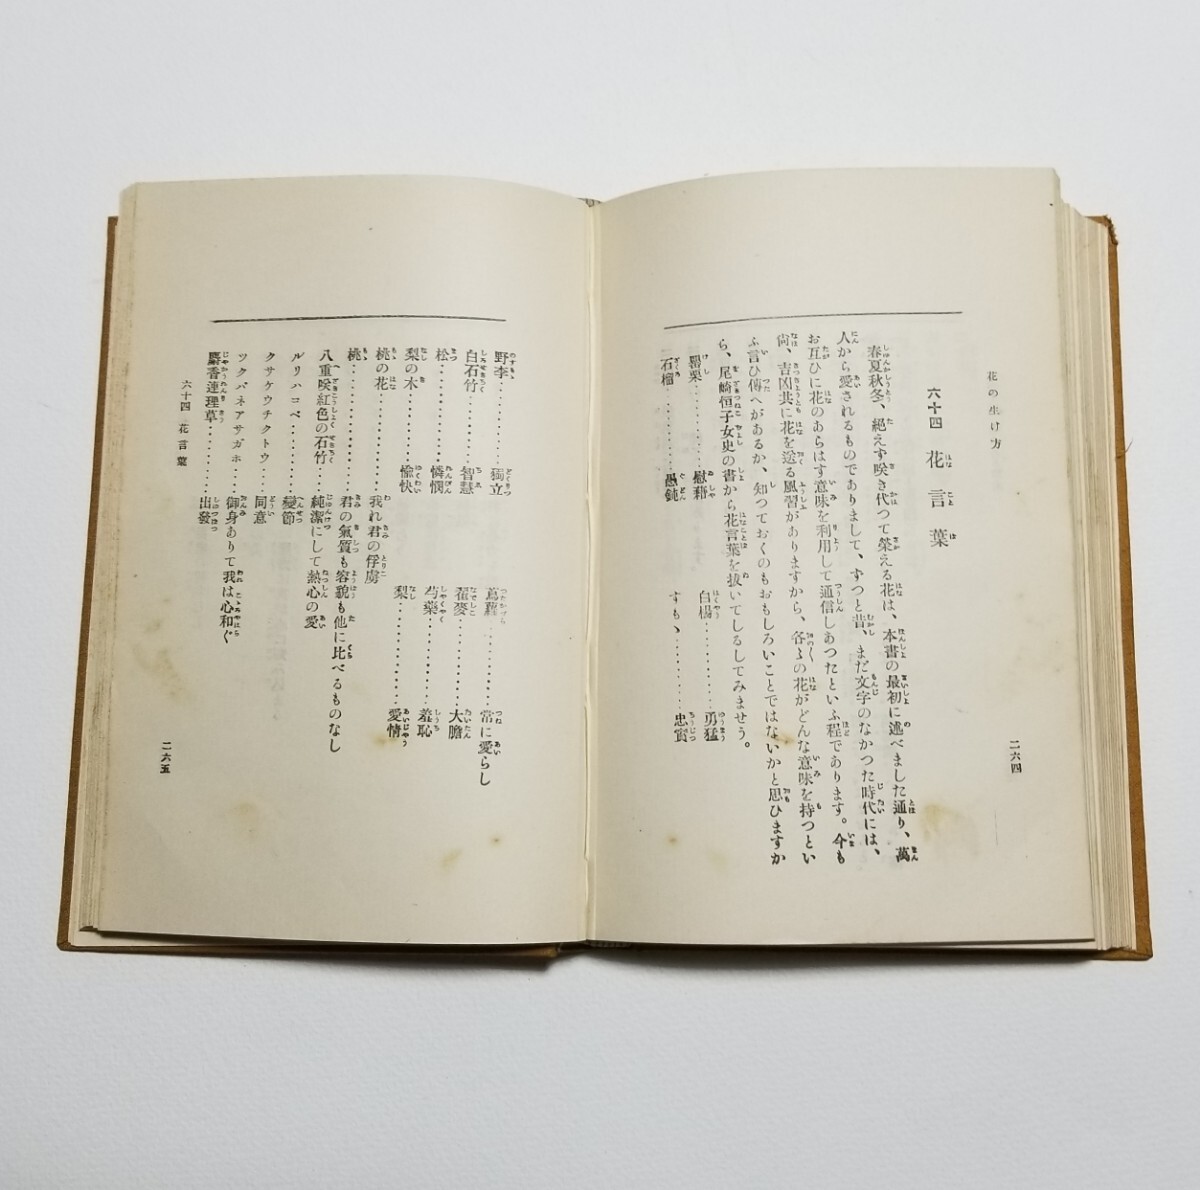 花の生け方
二六四
六十四 花言葉
春夏秋冬、絕えず咲き代つて榮える花は、本書の最初に述べました通り、萬
人から愛されるものでありまして、ずつと昔、まだ文字のなかつた時代には、
お互ひに花のあらはす意味を利用して通信しあつたといふ程であります。今も
尙、吉凶共に花を送る風習がありますから、各〻の花がどんな意味を持つとい
ふ言ひ傳へがあるか、知つておくのもおもしろいことではないかと思ひますか
ら、尾崎恒子女史の書から花言葉を拔いてしるしてみませう。
罌粟………………慰藉
白楊………………勇猛
石榴………………愚鈍
すもゝ………………忠實
野李………………獨立
蔦蘿………………常に愛らし
白石竹………………智慧
瞿麥………………大膽
松………………憐憫
芍藥………………羞恥
梨の木………………愉快
梨………………愛情
桃の花………………我れ君の俘虜
桃………………君の氣質も容貌も他に比べるものなし
八重咲紅色の石竹……純潔にして熱心の愛
ルリハコベ………………變節
クサケウチクトウ………同意
ツクバネアサガホ………御身ありて我は心和ぐ
麝香連理草………………出發
六十四 花言葉
二六五